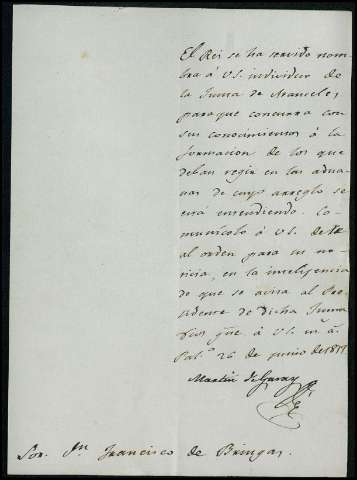 El Rei se ha servido nom
brar à V.S. individuo de
la Junta de Aranceles,
para que concurra con
sus conocimientos à la
formacion de los que
deban regir en las adua
nas de cuyo arreglo se
está entendiendo. Co
munícolo à V.S. de
al orden para su no
ticia, en la inteligencia
de que se avisa al Pre
sidente de dicha Junta
Dios gue. à V.S. m. a.
Pal.º 26 de junio de
Martin de Garay
Sor. Dn. Francisco de Bringas.